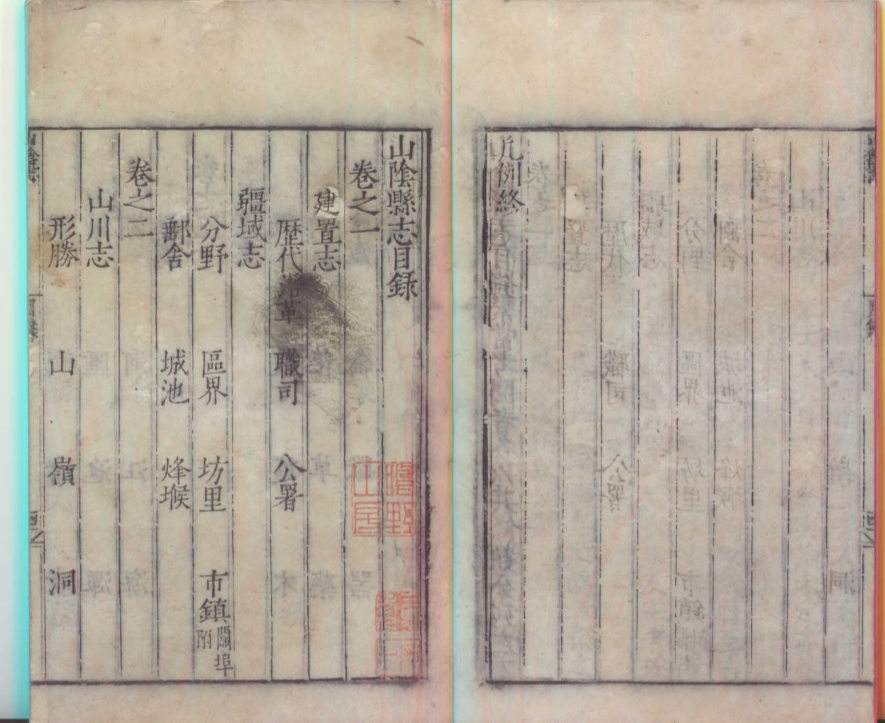 凡例終
山陰縣志目録
卷之一
建置志
歴代沿革 職司 公署
疆域志
分野 區界 坊里 市鎮 關埠附
郵舍 城池 烽堠
卷之二
山川志
形勝 山 嶺 洞